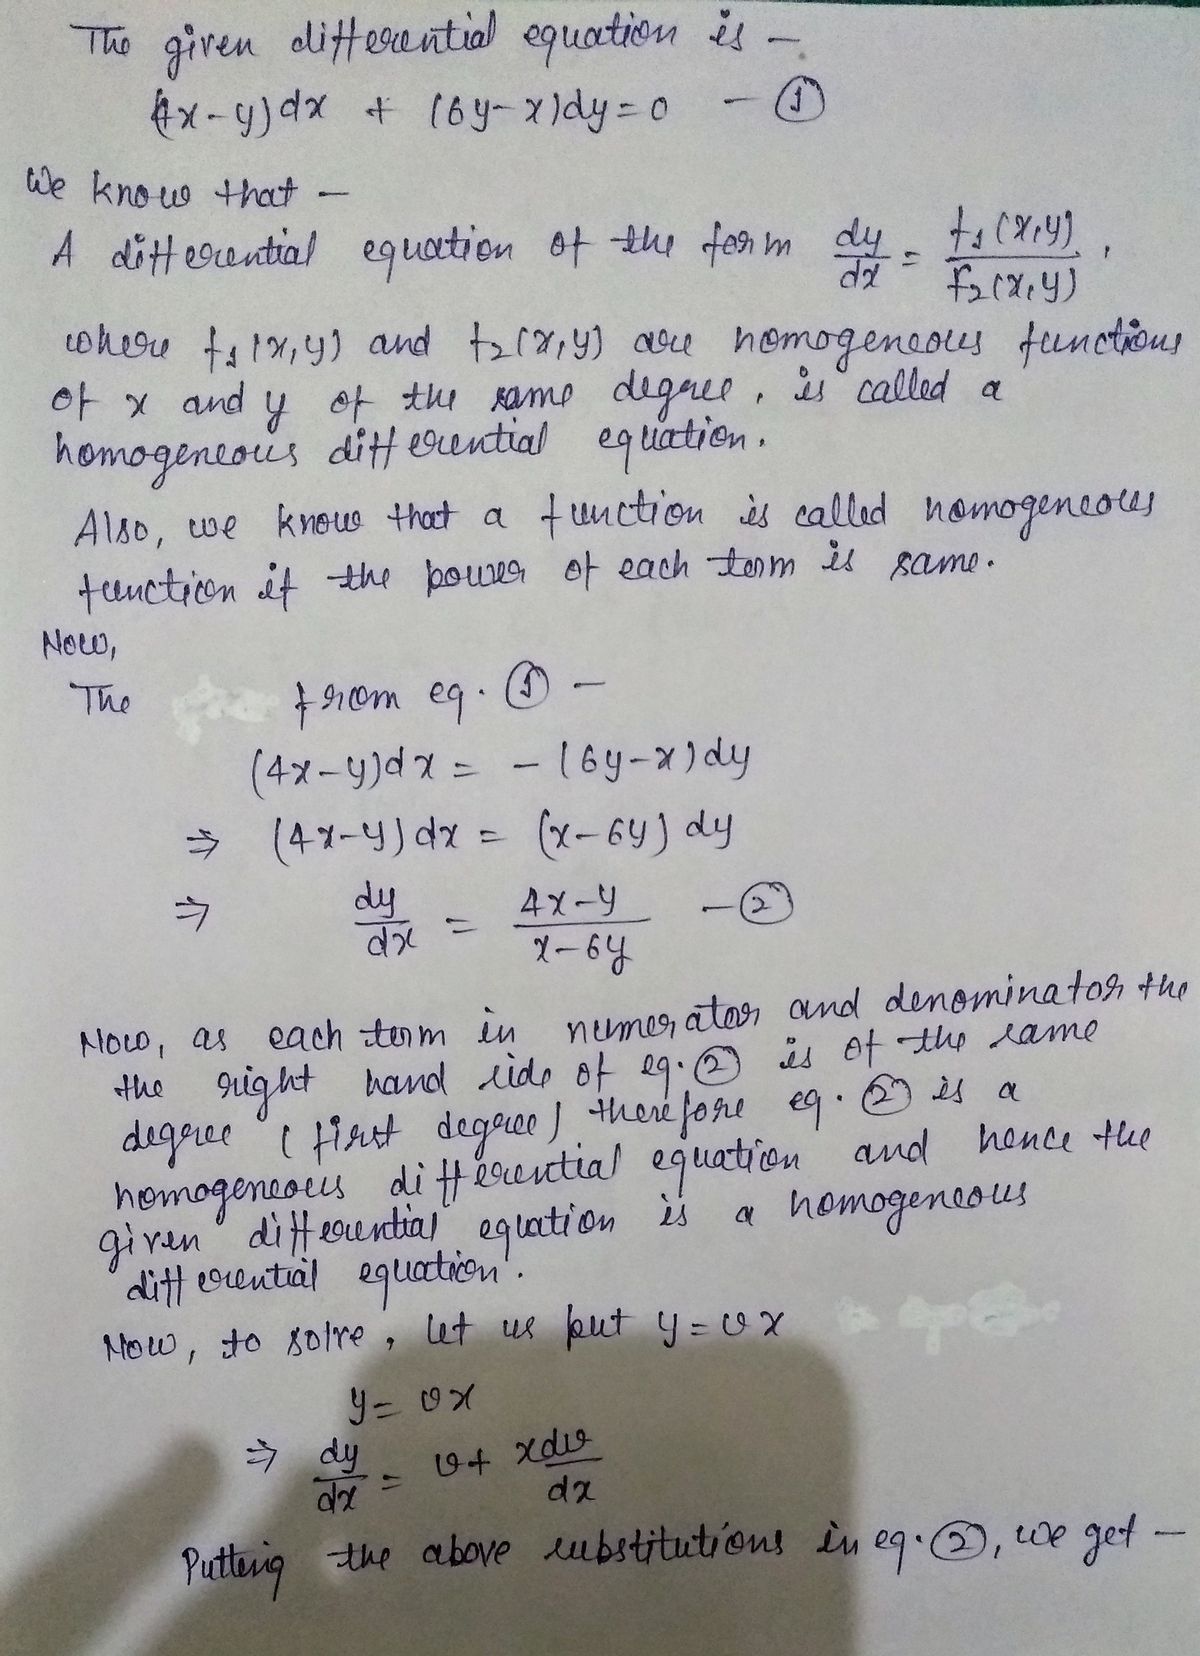 The given differential equation is –
(4x-y)dx + (6y-x)dy=0 – ①
We know that –
A differential equation of the form dy/dx = f₁(x,y)/f₂(x,y) ,
where f₁(x,y) and f₂(x,y) are homogeneous functions
of x and y of the same degree, is called a
homogeneous differential equation.
Also, we know that a function is called homogeneous
function if the power of each term is same.
Now,
The from eq. ① –
(4x-y)dx = -(6y-x)dy
⇒ (4x-y)dx = (x-6y) dy
⇒ dy/dx = 4x-y/x-6y – ②
Now, as each term in numerator and denominator the
the right hand side of eq. ② is of the same
degree (first degree) therefore eq. ② is a
homogeneous differential equation and hence the
given differential equation is a homogeneous
differential equation.
Now, to solve, let us put y=vx
y= vx
⇒ dy/dx = v+ xdv/dx
Putting the above substitutions in eq. ②, we get –